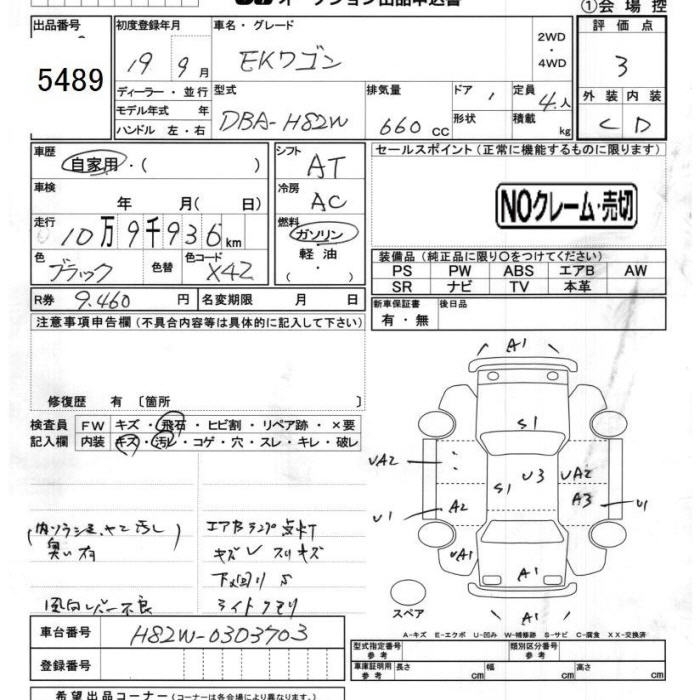 オークション出品申込書
①会場控
出品番号 初度登録年月 車名・グレード 評価点
5489 19 9月 EKワゴン 2WD・4WD 3
ディーラー・並行 型式 排気量 ドア 定員 外装 内装
モデル年式 年 DBA-H82W 660cc 形状 4人 積載 kg C D
ハンドル 左・右
車歴 自家用・( ) シフト AT セールスポイント(正常に機能するものに限ります)
車検 年 月( 日) 冷房 AC NOクレーム・売切
走行 10万9千936km 燃料 ガソリン・軽油・( )
色 ブラック 色替 色コード X42
装備品(純正品に限り○をつけてください)
PS PW ABS エアB AW
SR ナビ TV 本革
R券 9.460円 名変期限 月 日 新車保証書 有・無 後日品
注意事項申告欄(不具合内容等は具体的に記入して下さい)
修復歴 有 〔箇所 〕
検査員記入欄 FW キズ・飛石・ヒビ割・リペア跡・×要
内装 キズ・汚レ・コゲ・穴・スレ・キレ・破レ
エアBランプ点灯
キズU スリキズ
下廻りS
風向レバー不良 ライトクモリ
A1
S1
UA2 U3 UA2
S1 A3
U1 A2 U1
UA1 A1
A1
スペア
A-キズ E-エクボ U-凹み W-補修跡 S-サビ C-腐食 XX-交換済
車台番号 H82W-0303703
登録番号
型式指定番号 参考 類別区分番号 参考
車庫証明用 参考 長さ cm 幅 cm 高さ cm
希望出品コーナー(コーナーは各会場により異なります。)